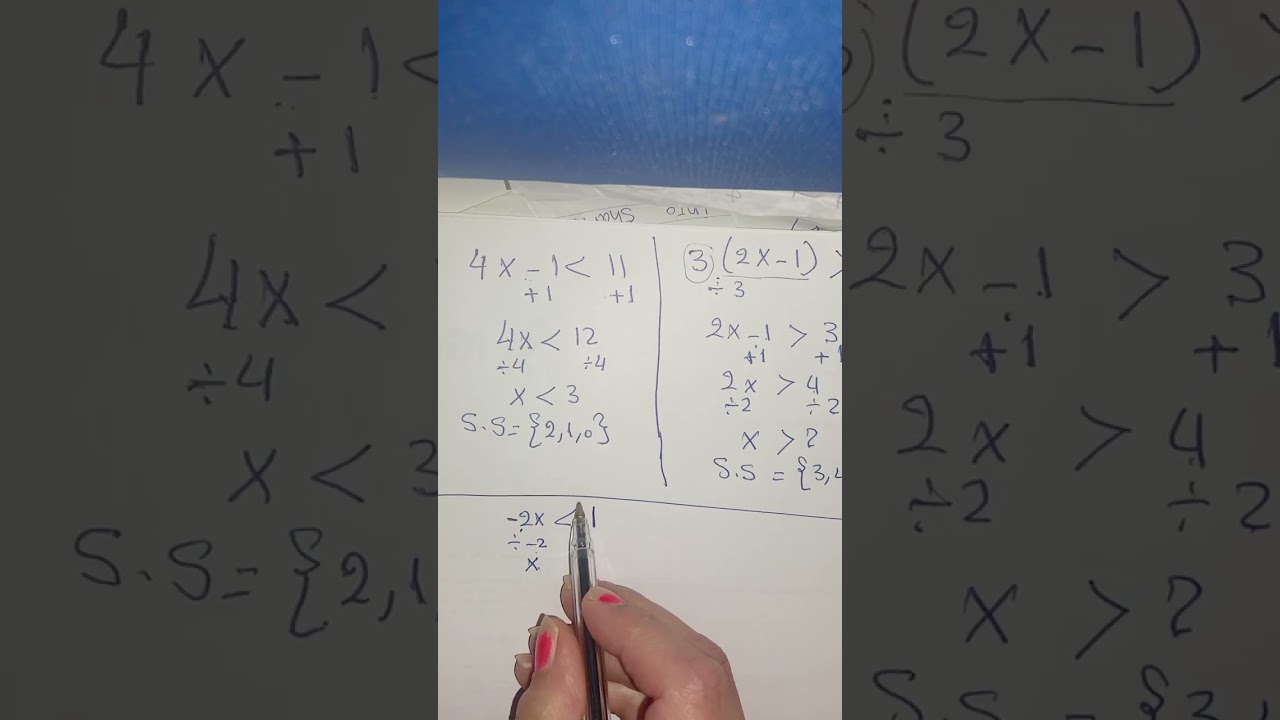 Sha
info
4x - 1 < 11
+1 +1
4x < 12
÷4 ÷4
x < 3
S.S = {2,1,0}
3 (2x-1) >
÷ 3
2x - 1 > 3
+1 +1
2x > 4
÷2 ÷2
x > 2
S.S = {3,4
-2x < 1
÷ -2
x